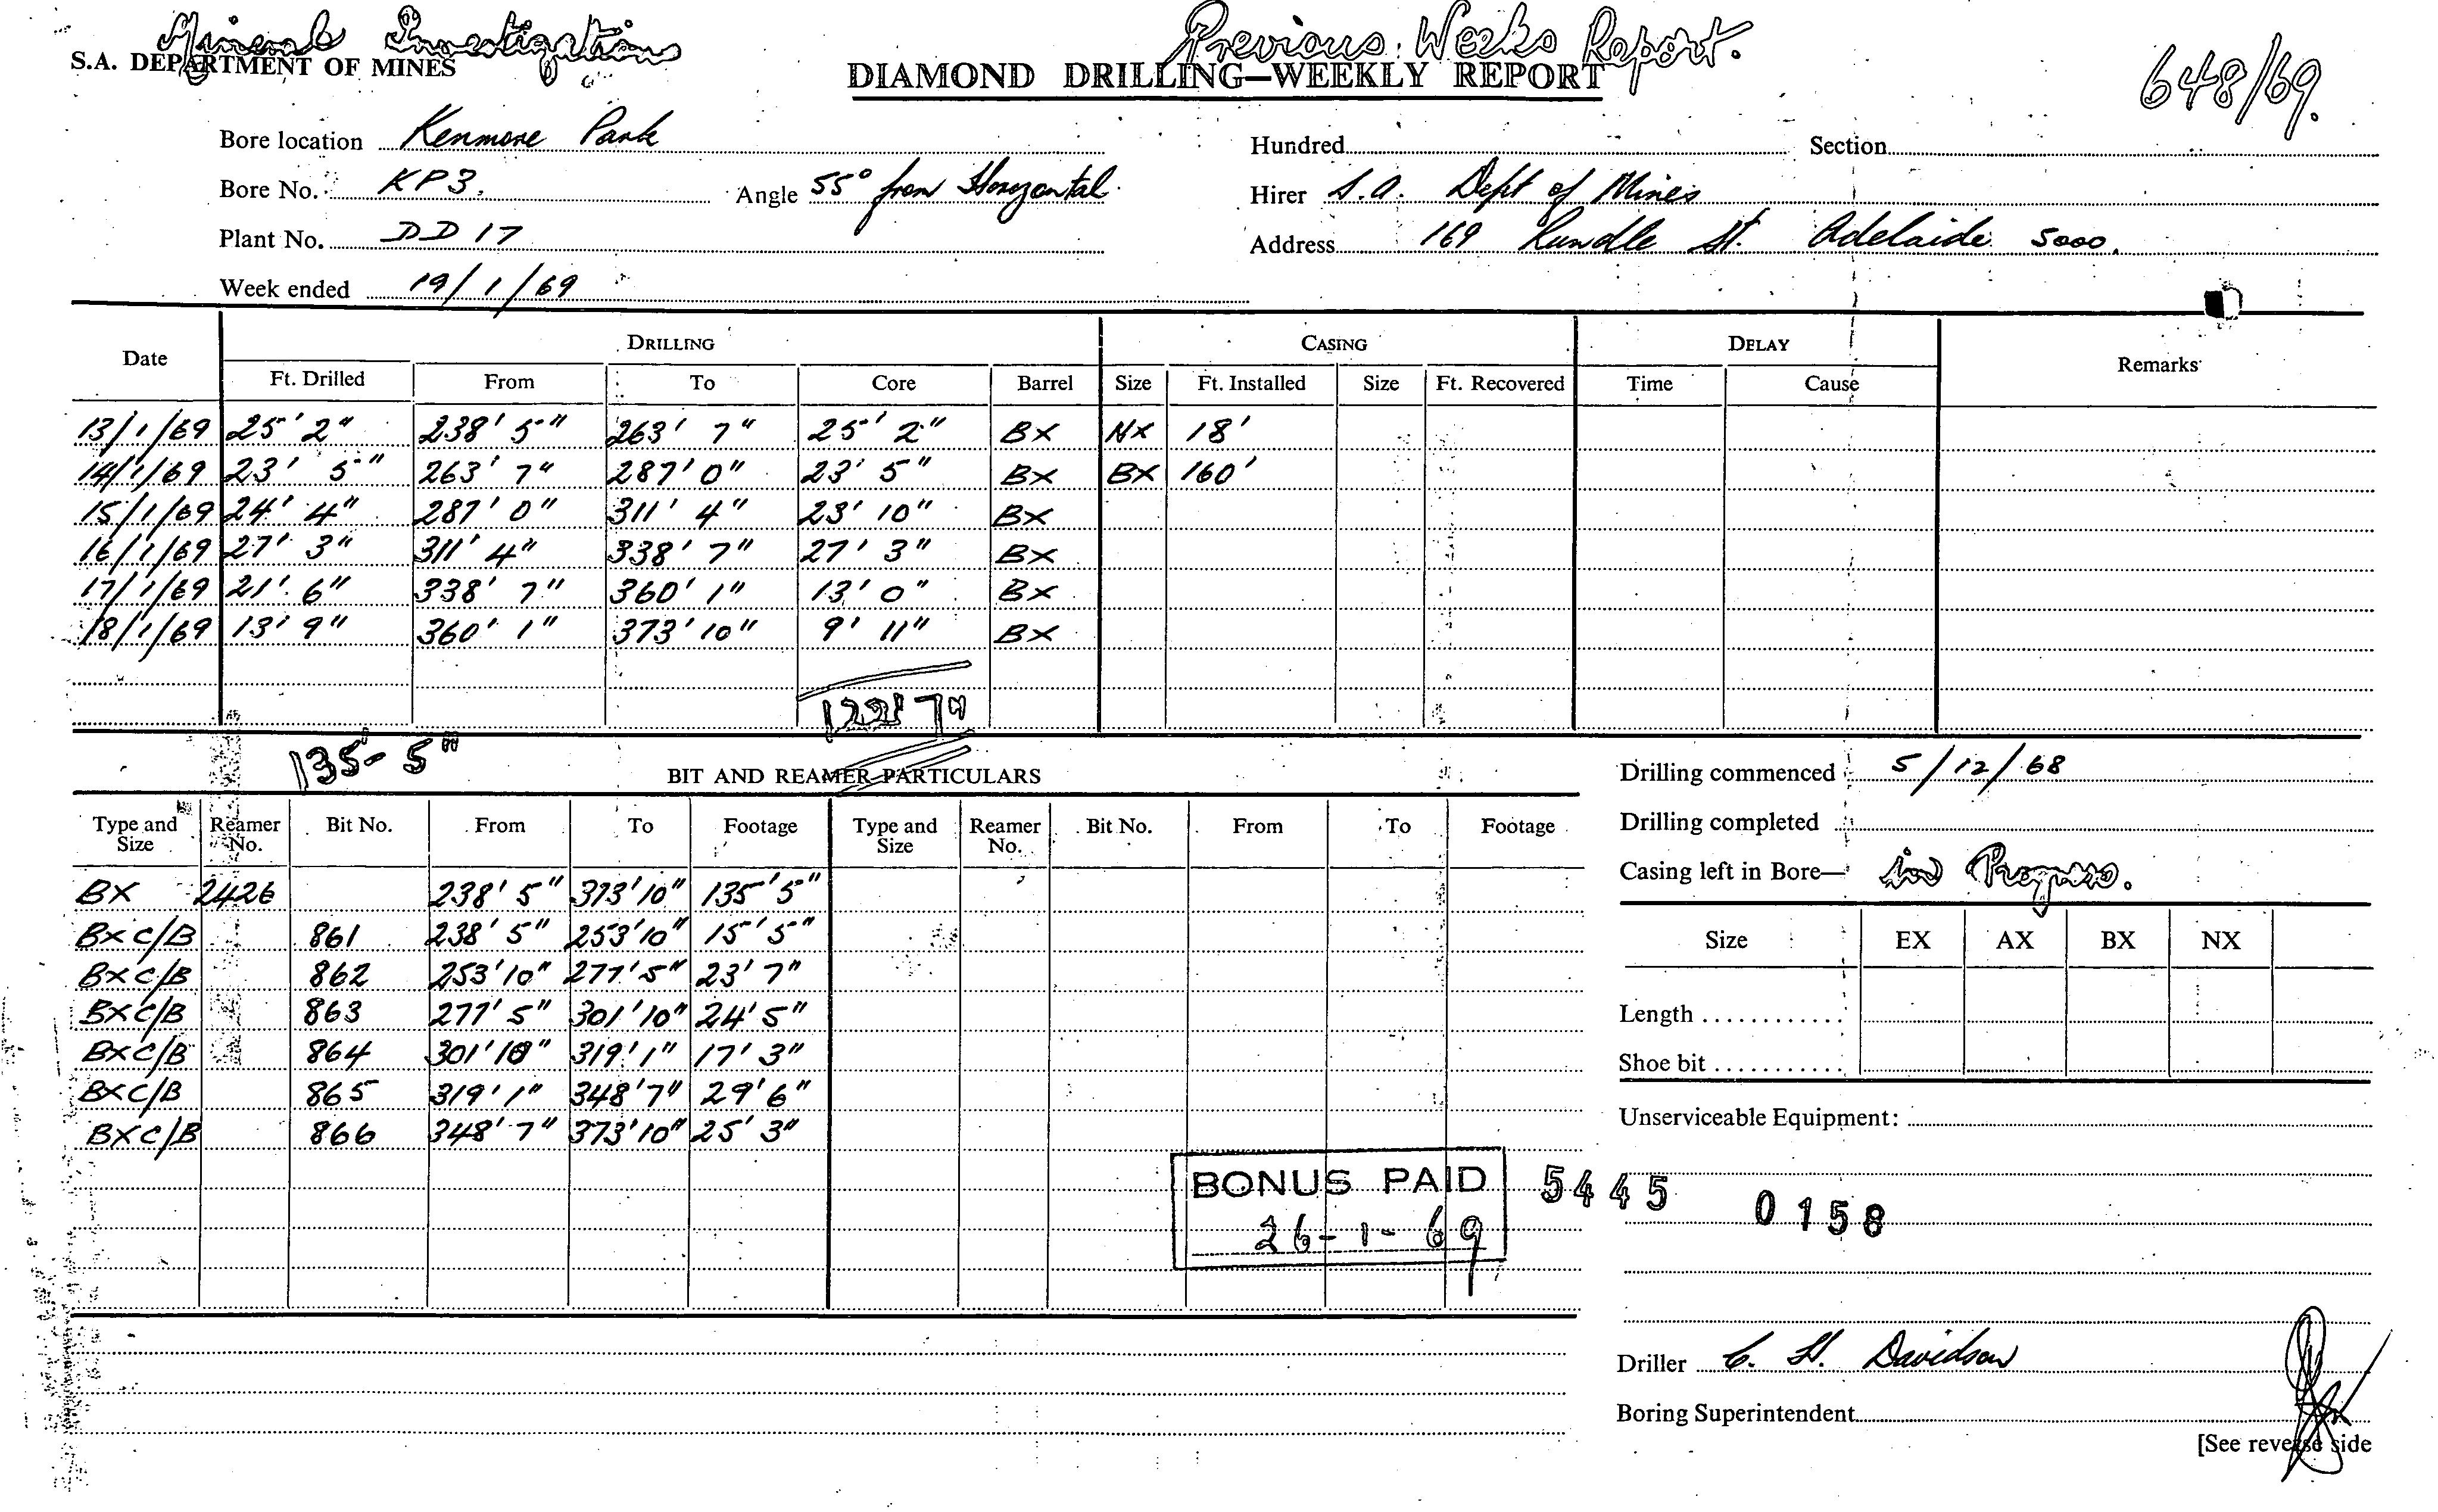 Minerals Investigations
Previous Weeks Report.
S.A. DEPARTMENT OF MINES
DIAMOND DRILLING—WEEKLY REPORT
648/69.
Bore location Kenmore Park
Hundred Section
Bore No. KP3. Angle 55° from Horyzontal.
Hirer S.A. Dept of Mines
Plant No. DD 17
Address 169 Rundle St. Adelaide 5000.
Week ended 19/1/69
Date DRILLING CASING DELAY Remarks
Ft. Drilled From To Core Barrel Size Ft. Installed Size Ft. Recovered Time Cause
13/1/69 25' 2" 238' 5" 263' 7" 25' 2" BX NX 18'
14/1/69 23' 5" 263' 7" 287' 0" 23' 5" BX BX 160'
15/1/69 24' 4" 287' 0" 311' 4" 23' 10" BX
16/1/69 27' 3" 311' 4" 338' 7" 27' 3" BX
17/1/69 21' 6" 338' 7" 360' 1" 13' 0" BX
18/1/69 13' 9" 360' 1" 373' 10" 9' 11" BX
122' 7"
135'- 5"
BIT AND REAMER PARTICULARS
Type and Size Reamer No. Bit No. From To Footage Type and Size Reamer No. Bit No. From To Footage
BX 2426 238' 5" 373' 10" 135' 5"
BXC/B 861 238' 5" 253' 10" 15' 5"
BXC/B 862 253' 10" 277' 5" 23' 7"
BXC/B 863 277' 5" 301' 10" 24' 5"
BXC/B 864 301' 10" 319' 1" 17' 3"
BXC/B 865 319' 1" 348' 7" 29' 6"
BXC/B 866 348' 7" 373' 10" 25' 3"
BONUS PAID
26-1-69
5445 0158
Drilling commenced 5/12/68
Drilling completed
Casing left in Bore— in Progress.
Size EX AX BX NX
Length
Shoe bit
Unserviceable Equipment:
Driller C. H. Davidson
Boring Superintendent
[See reverse side